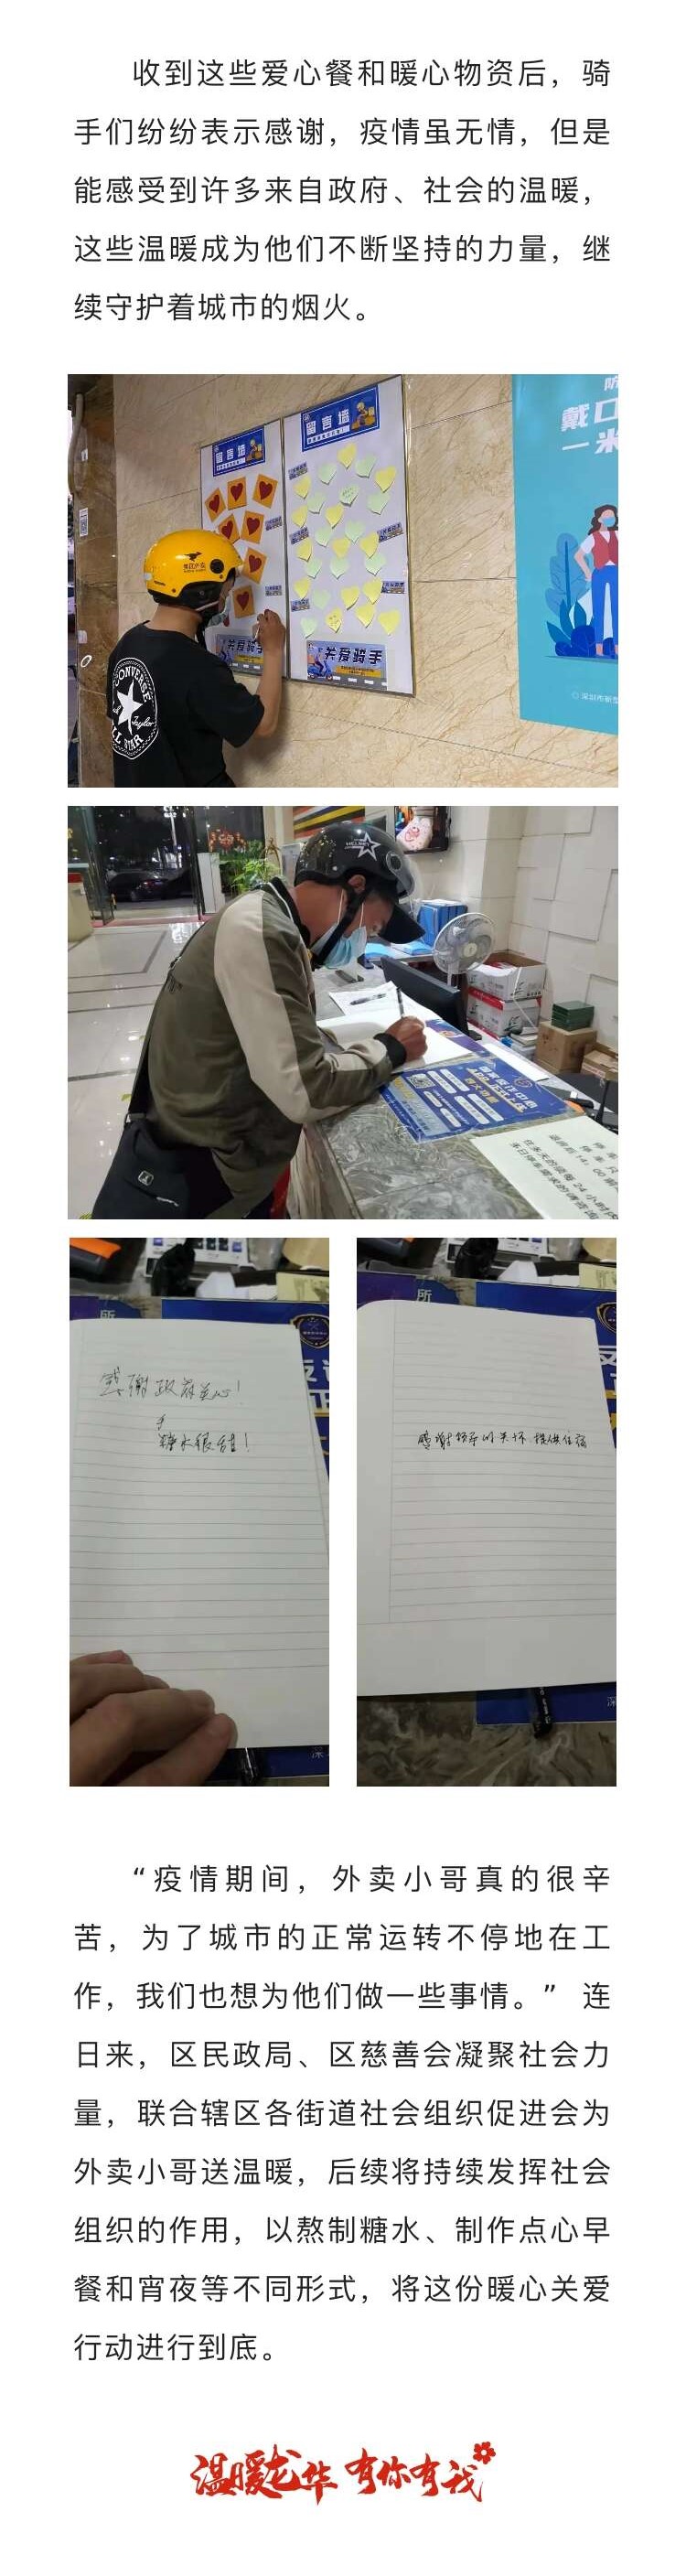 收到这些爱心餐和暖心物资后，骑
手们纷纷表示感谢，疫情虽无情，但是
能感受到许多来自政府、社会的温暖，
这些温暖成为他们不断坚持的力量，继
续守护着城市的烟火。
留言墙
留言墙
关爱骑手
关爱骑手
CONVERSE
ALL STAR
戴口
一米
所
感谢政府关心！
糖水很甜！
所
感谢领导的关怀 提供住宿
“疫情期间，外卖小哥真的很辛
苦，为了城市的正常运转不停地在工
作，我们也想为他们做一些事情。” 连
日来，区民政局、区慈善会凝聚社会力
量，联合辖区各街道社会组织促进会为
外卖小哥送温暖，后续将持续发挥社会
组织的作用，以熬制糖水、制作点心早
餐和宵夜等不同形式，将这份暖心关爱
行动进行到底。
温暖龙华 有你有我